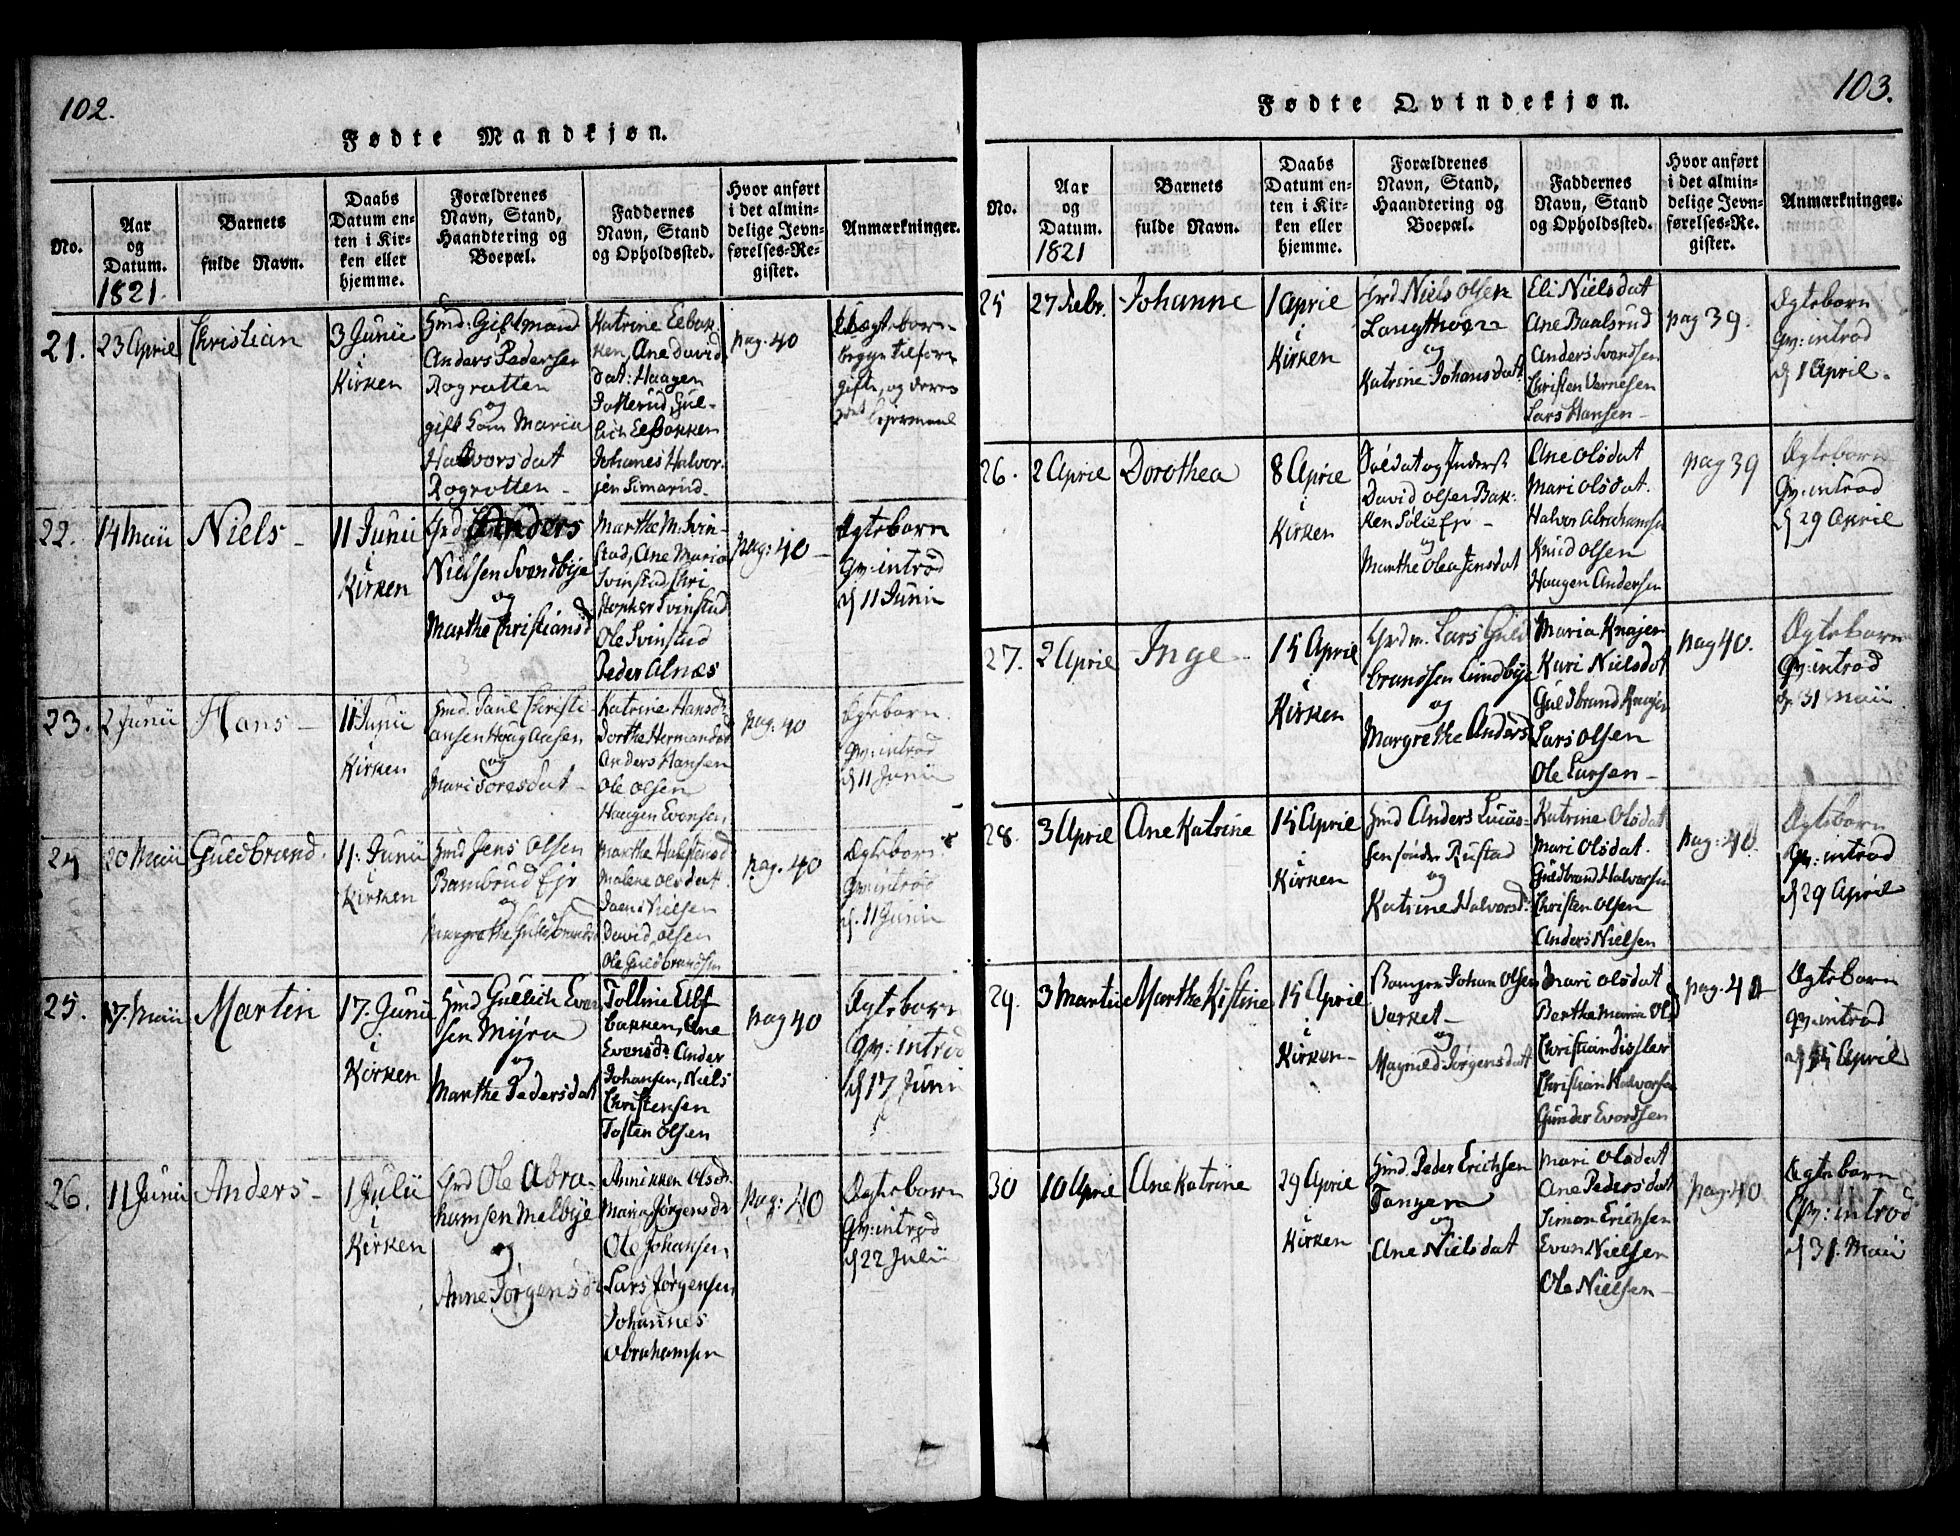 102.
Fødte Mandkjøn.
No.
Aar
og
Datum.
1821.
Barnets
fulde Navn.
Daabs
Datum en-
ten i Kir-
ken eller
hjemme.
Forældrenes
Navn, Stand,
Haandtering og
Boepæl.
Faddernes
Navn, Stand
og Opholdssted.
Hvor anført
i det almin-
delige Jevn-
førelses-Re-
gister.
Anmærkninger.
21.
23 April
Christian
3 Junii
i
Kirken
Gmd. Gift mand
Anders Pedersen
Rogrotten
og
gift Kone Maria
Halvorsdat
Rogrotten
Katrine Eebak
ken, Ane David
dat: Haagen
Gul-
lich Eebakken
Johanes Halvor-
sen Simarud
pag. 40
Uægteborn
begge tilforn
gifte, og deres
22.
14 Maii
Niels
11 Junii
i
Kirken
Grd Anders
Nielsen Svendbye
og
Marthe Christiansd
Marthe M. Svin-
stad, Ane Maria
Svinstad, Chri-
stopher Svinstad
Ole Svinstad
Peder Alnæs
pag: 40
Ægteborn
Qv: introd
d 11 Junii
23.
2 Junii
Hans
11 Junii
i
Kirken
Gmd. Paul Christi-
ansen Haug
og
Mari Toresdat
Katrine Hansd
Dorthe Hermansd
Anders Hansen
Ole Olsen
Haagen Evensen
pag: 40
Ægteborn.
Qv: introd
d 11 Junii
24
20 Maii
Guldbrand.
11. Junii
i
Kirken
Gmd Jens Olsen
Bambrud Ejr
og
Margrethe Guldbrandsd
Marthe Halstensd
Malene Olsdat.
Nielsen
David Olsen
Ole Guldbrandsen
pag. 40
Ægteborn
Qv: introd
d. 11 Junii
25.
17. Maii
Martin
17. Junii
i
Kirken
Gmd Gullich Even-
sen Myra
og
Marthe Pedersdat
Tolline
bakken, Ane
Evensd: Ander
Johansen, Niels
Christensen
Tosten Olsen
pag 40
Ægteborn
Qv: introd
d 17 Juni
26.
11 Junii
Anders
1 Julii
i
Kirken
Grd Ole Abra-
hamsen Melbye
og
Anne Jørgensd
Annikken Olsd
Maria Jørgensd
Ole Johansen
Lars Jørgensen
Johannes
Abrahamsen
pag: 40
Ægteborn
Qv: introd
d 22 Julii
103.
Fødte Qvindekjøn.
No.
Aar
og
Datum.
1821
Barnets
fulde Navn.
Daabs
Datum en-
ten i Kir-
ken eller
hjemme.
Forældrenes
Navn, Stand,
Haandtering og
Boepæl.
Faddernes
Navn, Stand
og Opholdssted.
Hvor anført
i det almin-
delige Jevn-
førelses-Re-
gister.
Anmærkninger.
25
27 Febr.
Johanne
1 April
i
Kirken
Grd Niels Olsen
og
Katrine Johansdat
Eli Nielsdat
Ane Baalsrud
Anders Svendsen
Christen
Lars Hansen
pag 39.
Ægteborn
Qv: introd
d 1 April.
26.
2 April
Dorothea
8 April
i
Kirken
Soldat og Inderst
David Olsen Bak-
ken Ejr
og
Marthe Olea Jensdat
Ane Olsdat
Mari Olsdat.
Halvor Abrahamsen
Knud Olsen
Haagen Andersen
pag 39
Ægteborn
Qv: introd
d 29 April
27.
2 April
Inge
15 April
i
Kirken
Grdm. Lars Guld
brandsen Lundbye
og
Margrethe Andersd
Maria Knajer
Kari Nielsdat
Guldbrand Knajer
Lars Olsen
Ole Larsen
pag 40.
Ægteborn
Qv: introd
d 31 Maii
28.
3 April
Ane Katrine
15 April
i
Kirken
Gmd Anders Lucas-
sen søndre Rustad
og
Katrine Halvorsd:
Katrine Olsdat
Mari Olsdat.
Guldbrand Halvorsen
Christen Olsen
Anders Nielsen
pag: 40
Ægteborn
Qv: introd
d 29 April
29.
3 Martii
Marthe Kistine
15 April
i
Kirken
Johan Olsen
Verket
og
Magnild Jørgensdat
Mari Olsdat
Berthe Maria Olsd
Christian
Christian Halvorsen
Gunder Evordsen
pag. 40
Ægteborn
Qv: introd
d 15 April
30
10 April
Ane Katrine
29 April
i
Kirken
Gmd. Peder Erichsen
Tangen
og
Ane Nielsdat
Mari Olsdat
Ane Pedersdat
Simon Erichsen
Even Nielsen
Ole Nielsen
pag: 40
Ægteborn
Qv: introd
d 31. Maii